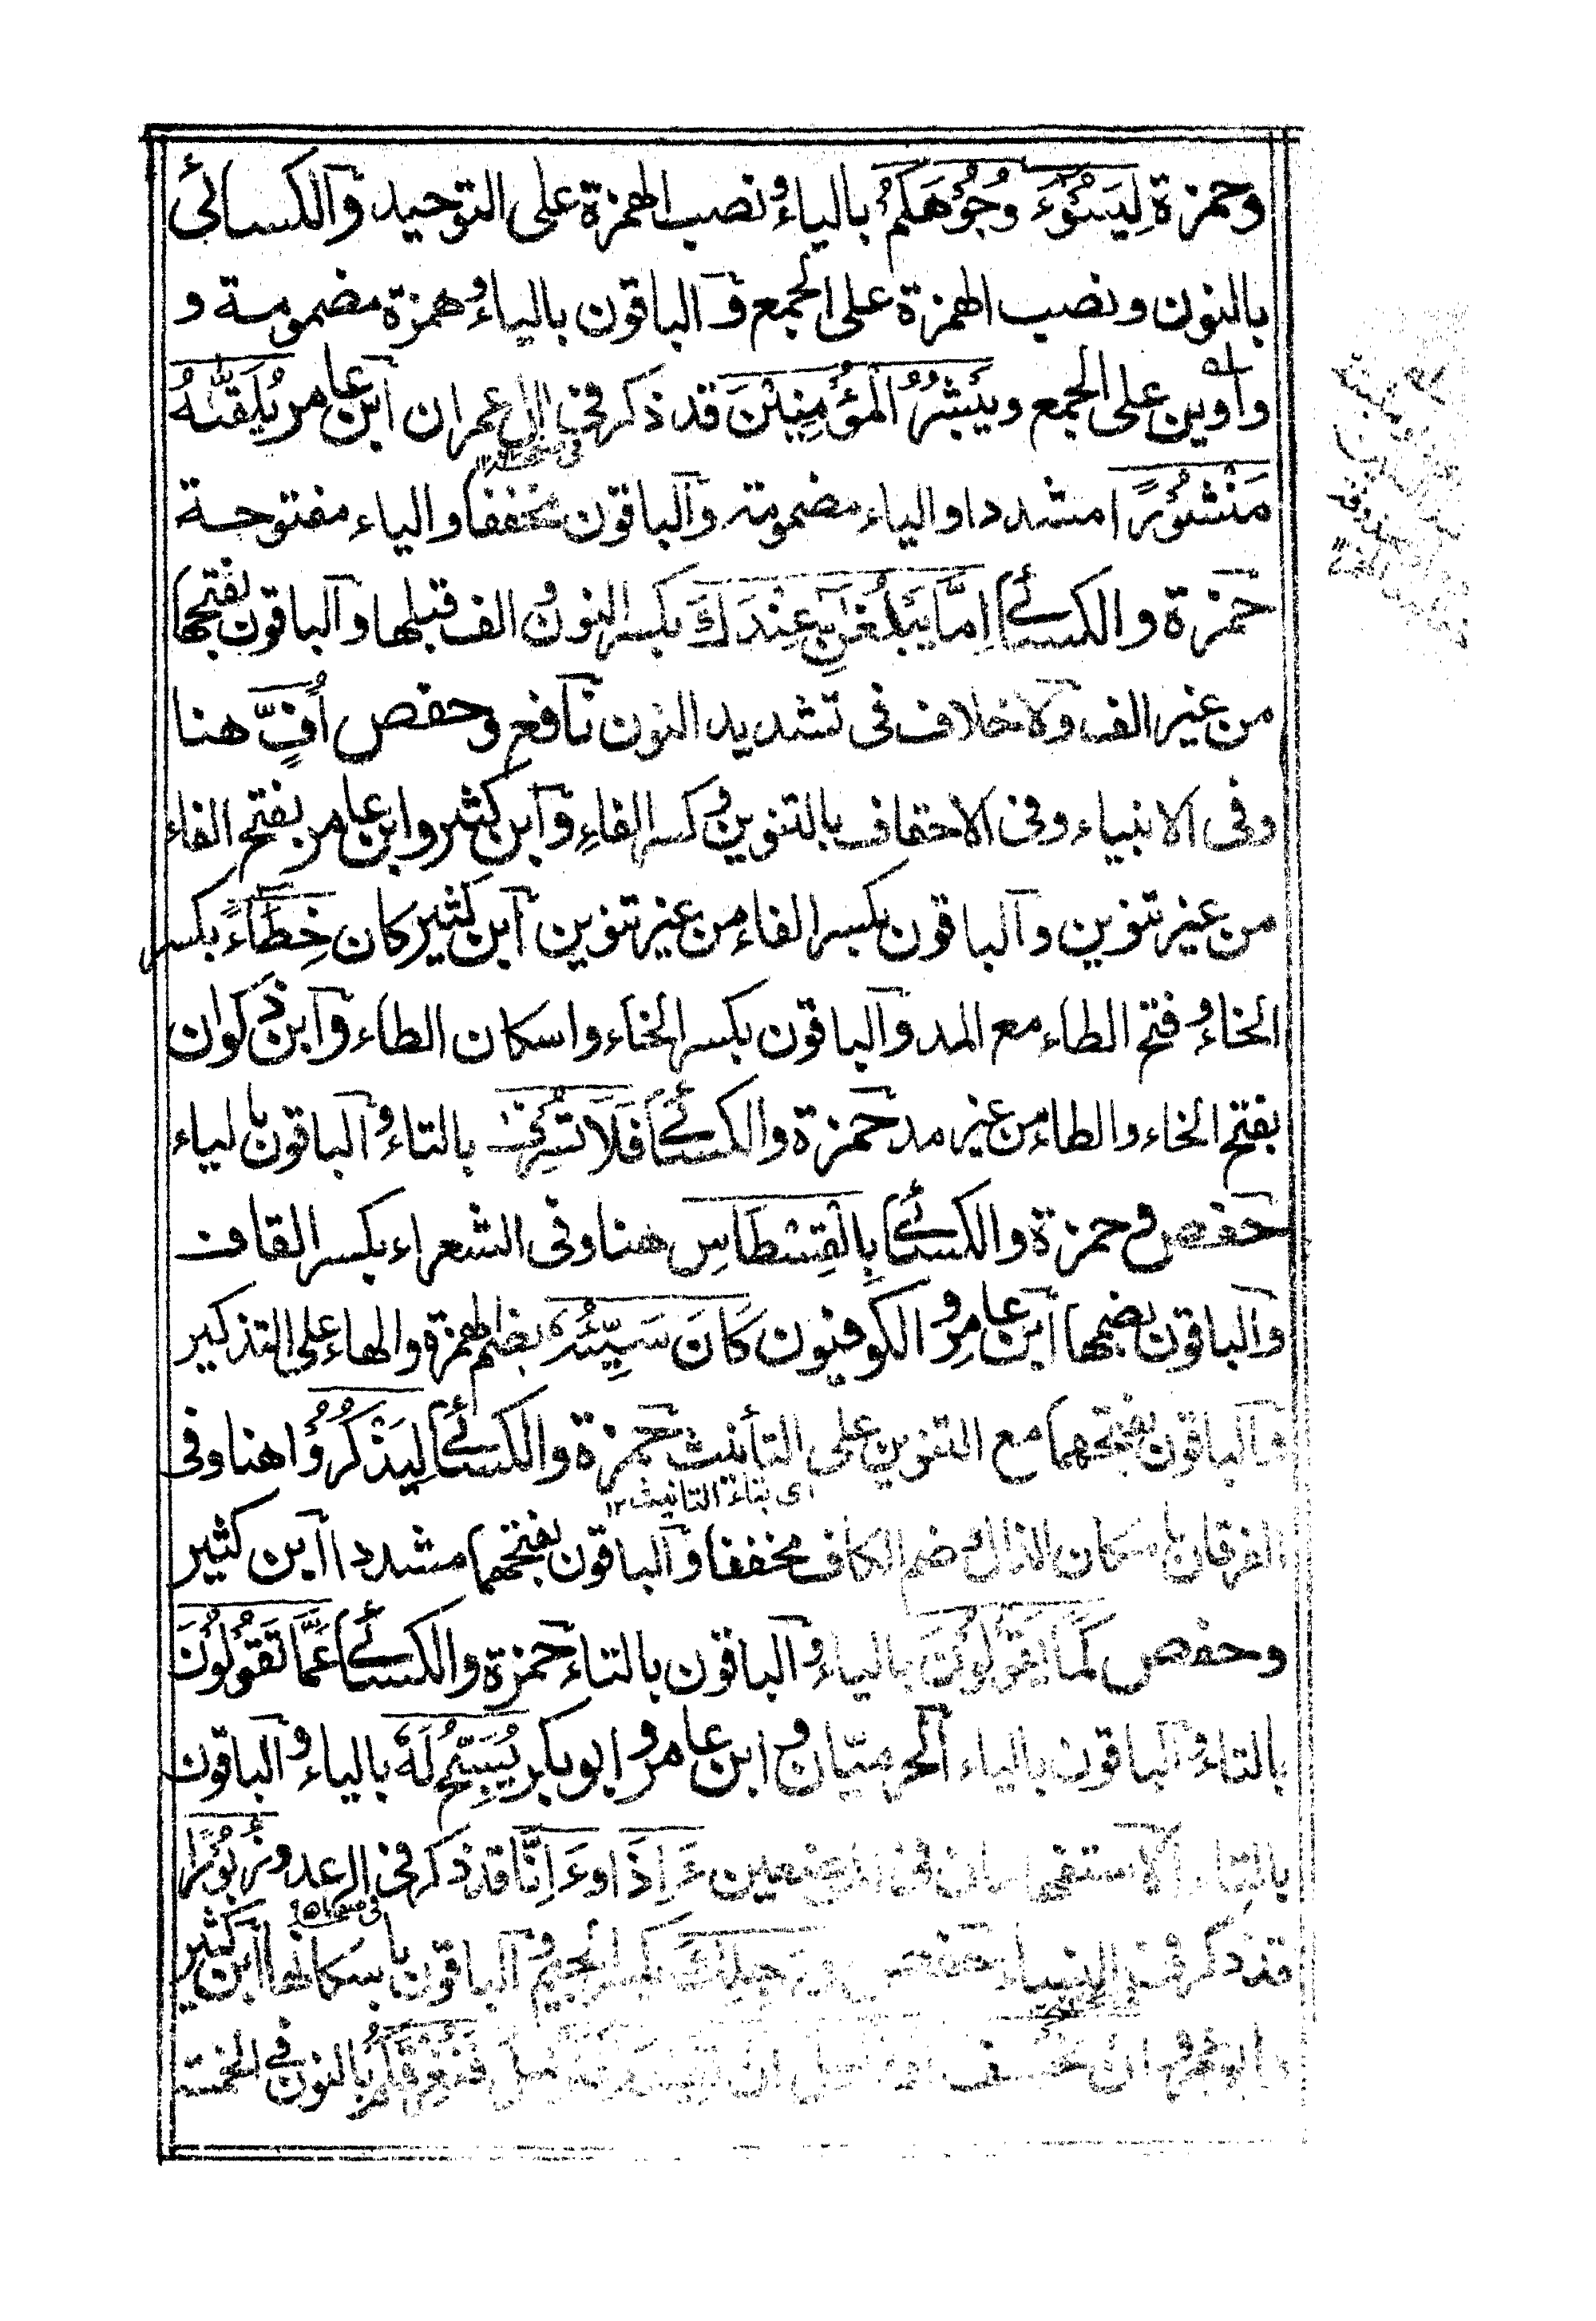 وحمزة لِيَسُوْءَ وُجُوْهَكُمْ بالياء ونصب الهمزة على التوحيد والكسائي
بالنون ونصب الهمزة على الجمع والباقون بالياء وهمزة مضمومة و
واوين على الجمع ويَبْشُرُ الْمُؤْمِنِيْنَ قد ذكر في ال عمران ابن عامر يُلَقّٰىهُ
مَنْشُوْرًا مشددا والياء مضمومة والباقون مخففا والياء مفتوحة
حمزة والكسائي اِمَّا يَبْلُغٰنِّ عِنْدَكَ بكسر النون والف قبلها والباقون بفتحها
من غير الف ولا خلاف في تشديد النون نافع وحفص اُفٍّ هنا
وفي الانبياء وفي الاحقاف بالتنوين وكسر الفاءِ وابن كثير وابن عامر بفتح الفاء
من غير تنوين والباقون بكسر الفاء من غير تنوين ابن كثير كان خِطَآءً بكسر
الخاء وفتح الطاء مع المد والباقون بكسر الخاء واسكان الطاء وابن ذكوان
بفتح الخاء والطاء من غير مد حمزة والكسائي فَلَا تُسْرِفْ بالتاء والباقون بالياء
حفص وحمزة والكسائي بِالْقِسْطَاسِ هنا وفي الشعراء بكسر القاف
والباقون بضمها ابن عامر والكوفيون كَانَ سَيِّئُهٗ بضم الهمزة والهاء على التذكير
والباقون بفتحهما مع التنوين على التأنيث حمزة والكسائي لِيَذْكُرُوْا هنا وفي
اى بتاء التانيث ١٢
الفرقان باسكان الذال وضم الكاف مخففا والباقون بفتحهما مشددا ابن كثير
وحفص كَمَا يَقُوْلُوْنَ بالياء والباقون بالتاء حمزة والكسائي عَمَّا تَقُوْلُوْنَ
بالتاء والباقون بالياء الحرميّان وابن عامر وابو بكر يُسَبِّحُ لَهٗ بالياء والباقون
بالتاء الاستفهامان في الموضعين ءَاِذَا وءَاِنَّا قد ذكر في الرعد وزُبُوْرًا
قد ذكر في النساء حفص ورَجِلِكَ بكسر الجيم والباقون باسكانها ابن كثير
وابو عمرو ان نخسف او نرسل ان نعيدكم فنرسل فَنُغْرِقَكُمْ بالنون في الخمسة